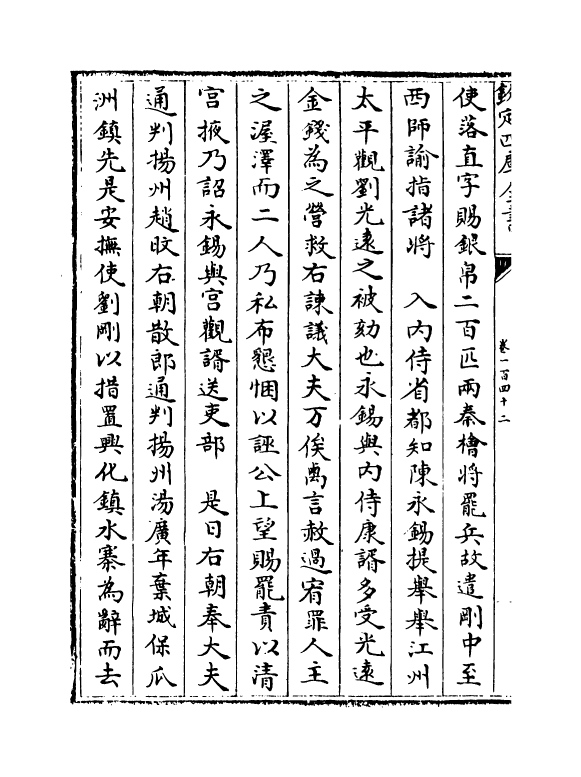 欽定四庫全書
卷一百四十二
使落直字賜銀帛二百匹兩秦檜將罷兵故遣剛中至
西師諭指諸將　入内侍省都知陳永錫提舉舉江州
太平觀劉光遠之被劾也永錫與内侍康諝多受光遠
金錢為之營救右諫議大夫万俟卨言赦過宥罪人主
之渥澤而二人乃私布懇悃以誣公上望賜罷責以清
宫掖乃詔永錫與宫觀諝送吏部　是日右朝奉大夫
通判揚州趙旼右朝散郎通判揚州湯廣年棄城保瓜
洲鎮先是安撫使劉剛以措置興化鎮水寨為辭而去